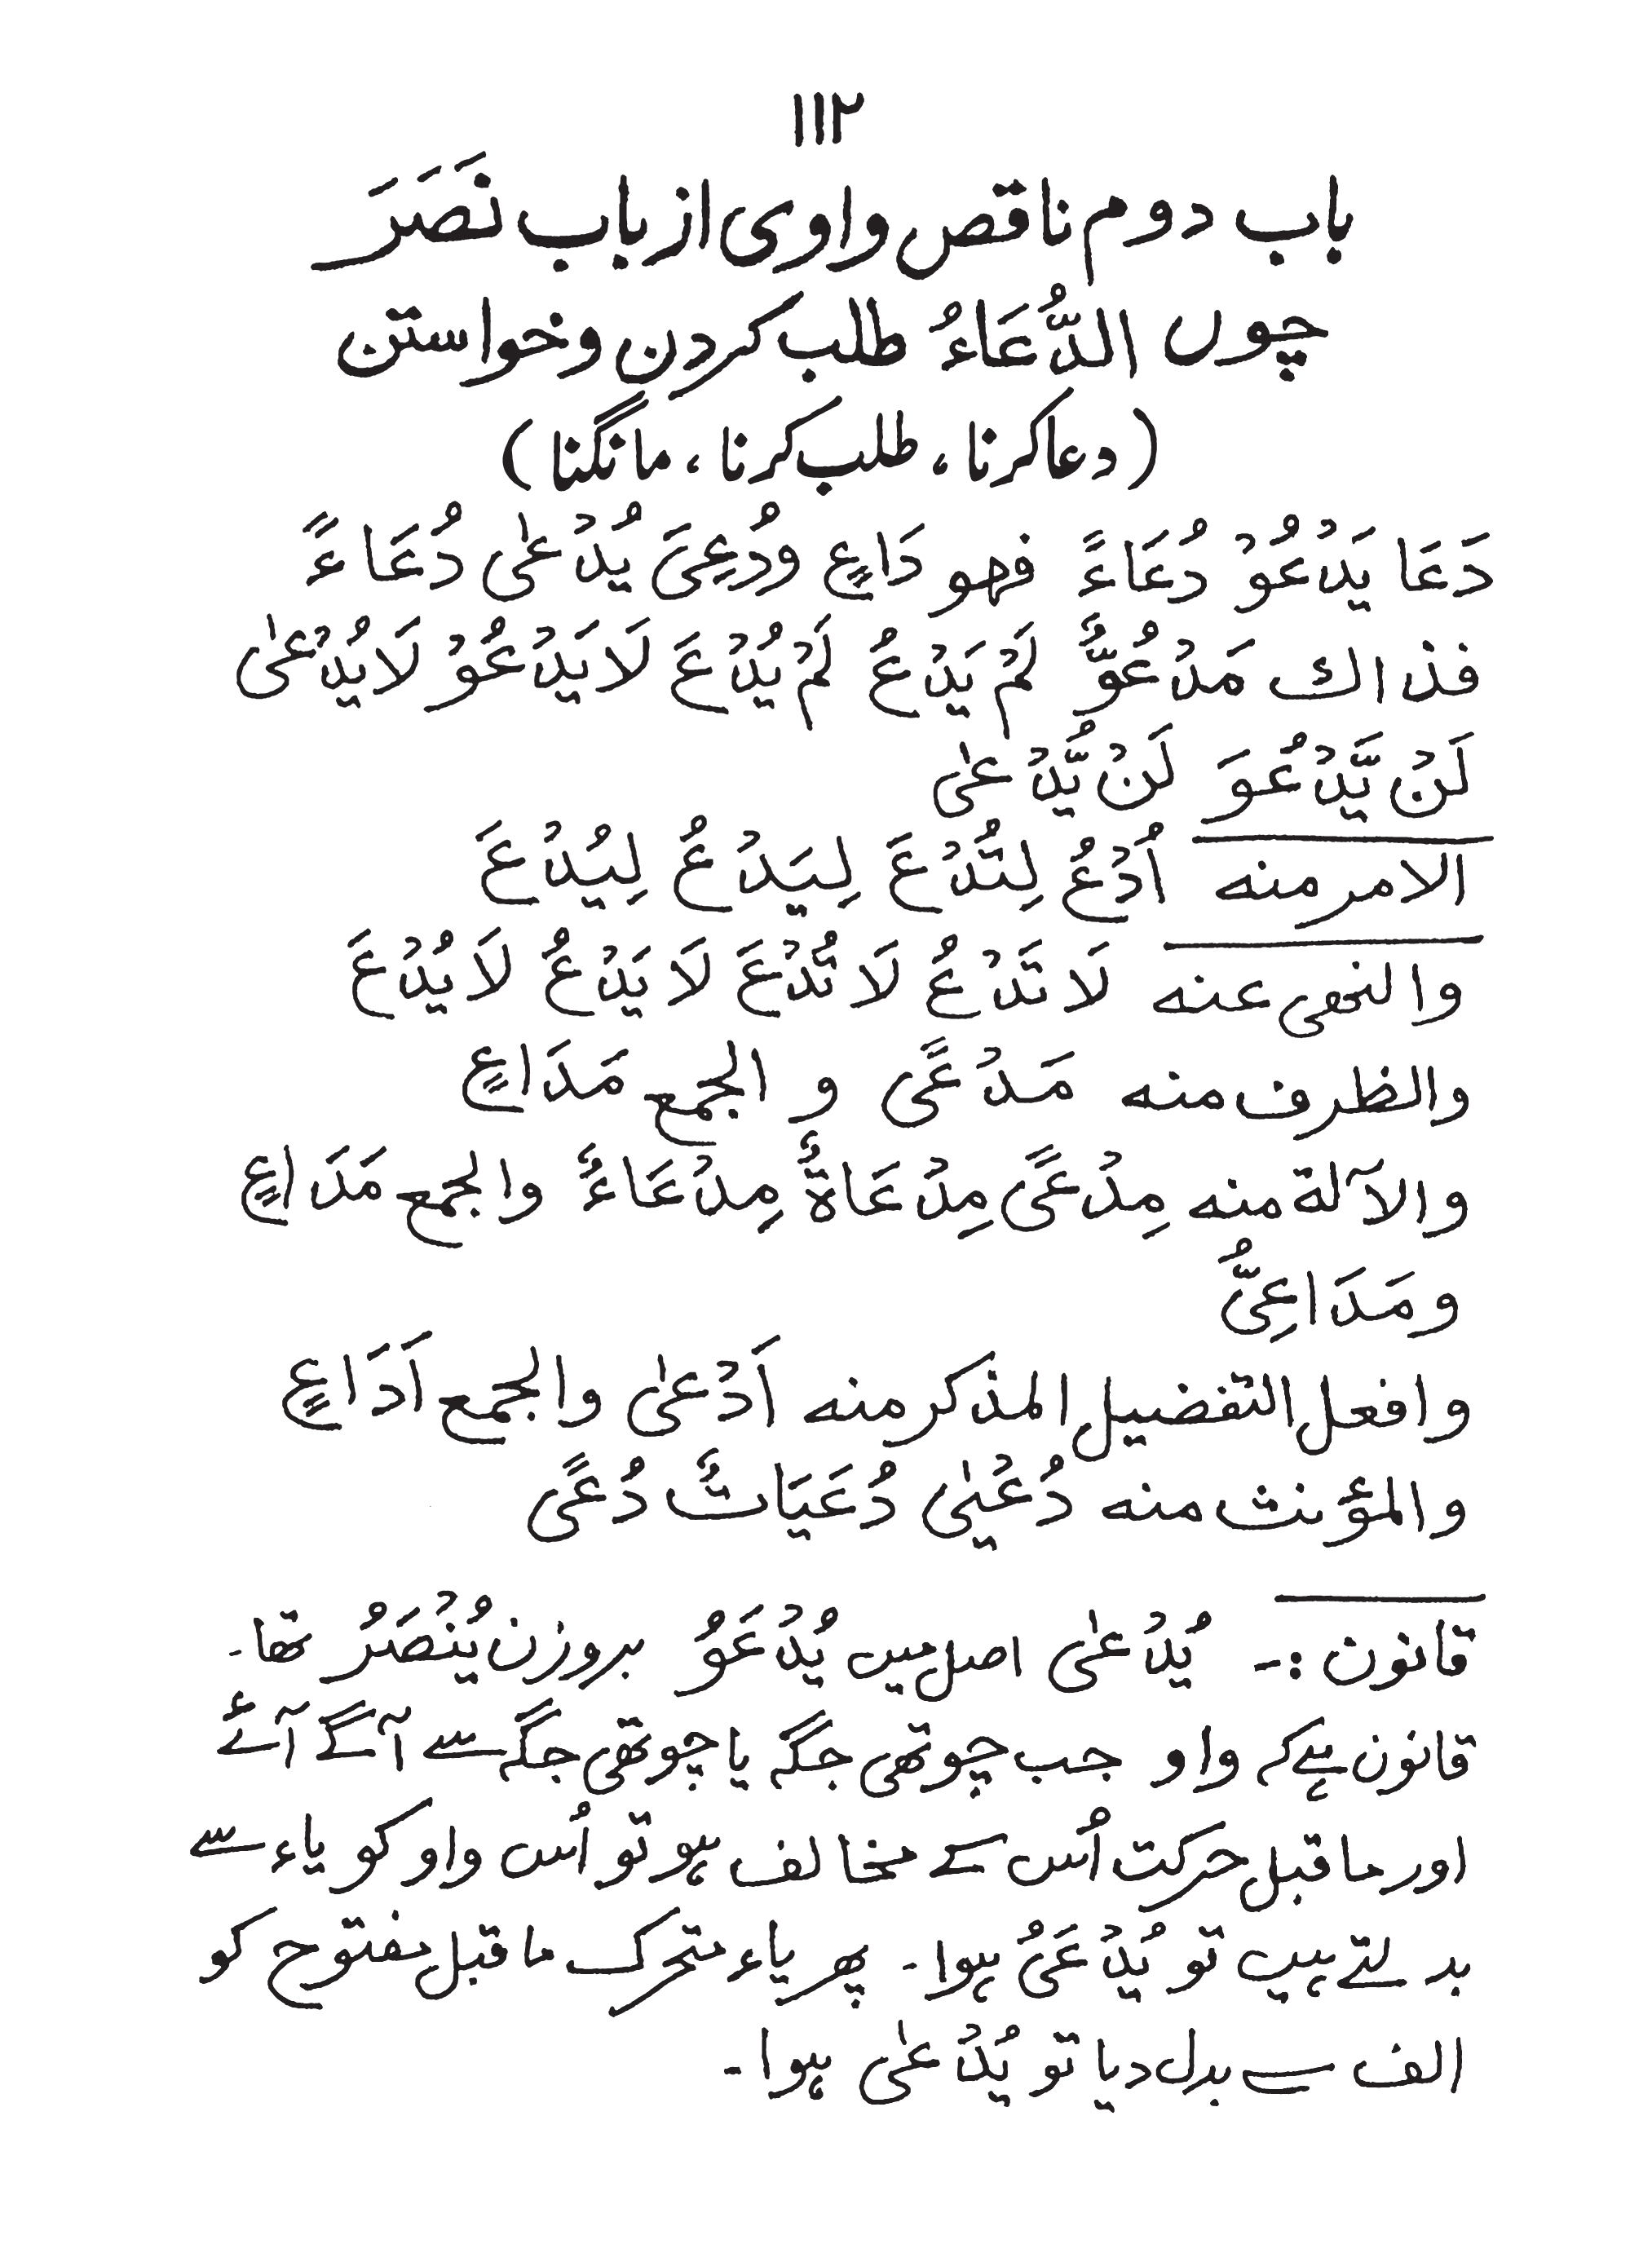 ۱۱۲
باب دوم ناقص واوی از باب نَصَرَ
چوں الدُّعَاءُ طلب کردن و خواستن
(دعا کرنا ، طلب کرنا ، مانگنا)
دَعَا یَدْعُوْ دُعَاءً فھو دَاعٍ ودُعِیَ یُدْعٰی دُعَاءً
فذاك مَدْعُوٌّ لَمْ یَدْعُ لَمْ یُدْعَ لَا یَدْعُوْ لَا یُدْعٰی
لَنْ یَّدْعُوَ لَنْ یُّدْعٰی
الامر منه اُدْعُ لِتُدْعَ لِیَدْعُ لِیُدْعَ
والنھی عنه لَا تَدْعُ لَا تُدْعَ لَا یَدْعُ لَا یُدْعَ
والظرف منه مَدْعًی و الجمع مَدَاعٍ
والآلة منه مِدْعًی مِدْعَاةٌ مِدْعَاءٌ والجمع مَدَاعٍ
و مَدَاعِیُّ
وافعل التفضیل المذکر منه اَدْعٰی والجمع اَدَاعٍ
والمؤنث منه دُعْیٰی دُعَیَاتٌ دُعًی
قانون :۔ یُدْعٰی اصل میں یُدْعَوُ بروزن یُنْصَرُ تھا۔
قانون ہے کہ واو جب چوتھی جگہ یا چوتھی جگہ سے آگے آئے
اور ماقبل حرکت اُس کے مخالف ہو تو اُس واو کو یاء سے
بدلتے ہیں تو یُدْعَیُ ہوا۔ پھر یاء متحرک ماقبل مفتوح کو
الف سے بدل دیا تو یُدْعٰی ہوا۔